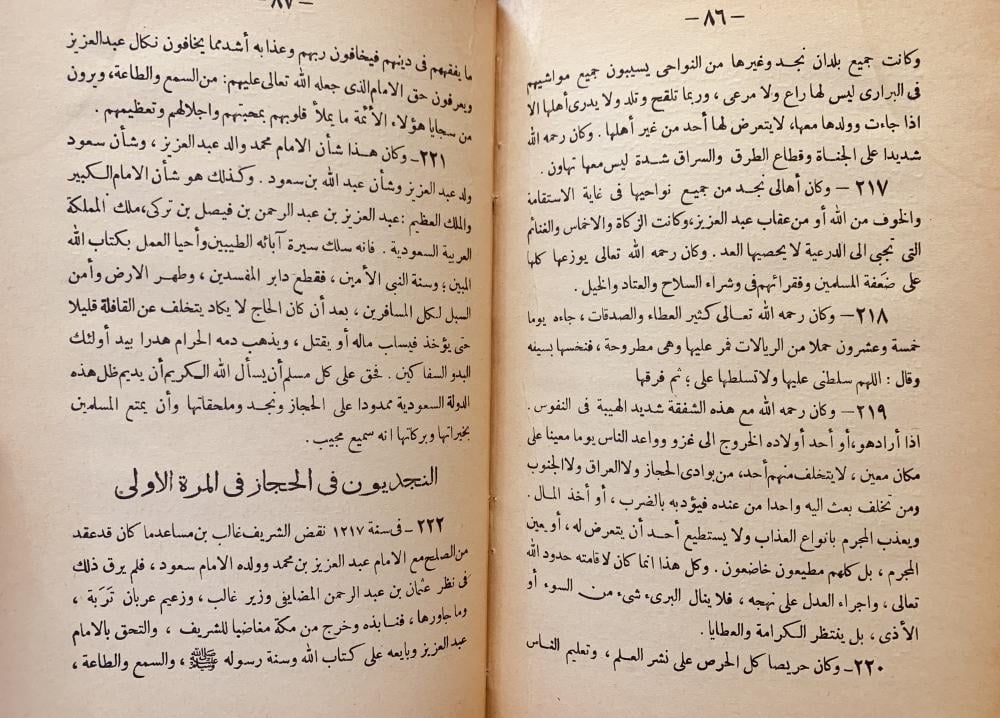 — ٨٦ —
وكانت جميع بلدان نجد وغيرها من النواحى يسيبون جميع مواشيهم
فى البرارى ليس لها راع ولا مرعى ، وربما تلقح وتلد ولا يدرى أهلها الا
اذا جاءت وولدها معها، لا يتعرض لها أحد من غير أهلها . وكان رحمه الله
شديدا على الجناة وقطاع الطرق والسراق شدة ليس معها تهاون .
٢١٧ — وكان أهالى نجد من جميع نواحيها فى غاية الاستقامة
والخوف من الله أو من عقاب عبد العزيز، وكانت الزكاة والاخماس والغنائم
التى تجبى الى الدرعية لا يحصيها العد . وكان رحمه الله تعالى يوزعها كلها
على ضَعفة المسلمين وفقرائهم وفى وشراء السلاح والعتاد والخيل .
٢١٨ — وكان رحمه الله تعالى كثير العطاء والصدقات ، جاءه يوما
خمسة وعشرون حملا من الريالات فمر عليها وهى مطروحة ، فنخسها بسيفه
وقال : اللهم سلطنى عليها ولا تسلطها على ؛ ثم فرقها
٢١٩ — وكان رحمه الله مع هذه الشفقة شديد الهيبة فى النفوس .
اذا أراد هو، أو أحد أولاده الخروج الى غزو وواعد الناس يوما معينا على
مكان معين ، لا يتخلف منهم أحد، من بوادى الحجاز ولا العراق ولا الجنوب
ومن تخلف بعث اليه واحدا من عنده فيؤدبه بالضرب ، أو أخذ المال .
ويعذب المجرم بانواع العذاب ولا يستطيع أحد أن يتعرض له ، أو يعين
المجرم ، بل كلهم مطيعون خاضعون . وكل هذا انما كان لاقامته حدود الله
تعالى ، واجراء العدل على نهجه ، فلا ينال البرىء شىء من السوء أو
الأذى ، بل ينتظر الكرامة والعطايا .
٢٢٠ — وكان حريصا كل الحرص على نشر العلم ، وتعليم الناس
— ٨٧ —
ما يفقههم فى دينهم فيخافون ربهم وعذابه أشد مما يخافون نكال عبد العزيز
ويعرفون حق الامام الذى جعله الله تعالى عليهم : من السمع والطاعة، ويرون
من سجايا هؤلاء الأئمة ما يملأ قلوبهم بمحبتهم واجلالهم وتعظيمهم .
٢٢١ — وكان هذا شأن الامام محمد والد عبد العزيز ، وشأن سعود
ولد عبد العزيز وشأن عبد الله بن سعود . وكذلك هو شأن الامام الكبير
والملك العظيم : عبد العزيز بن عبد الرحمن بن فيصل بن تركى، ملك المملكة
العربية السعودية . فانه سلك سيرة آبائه الطيبين وأحيا العمل بكتاب الله
المبين ؛ وسنة النبى الأمين ، فقطع دابر المفسدين ، وطهر الارض وأمن
السبل لكل المسافرين ، بعد أن كان الحاج لا يكاد يتخلف عن القافلة قليلا
حتى يؤخذ فيسلب ماله أو يقتل ، ويذهب دمه الحرام هدرا بيد أولئك
البدو السفاكين . فحق على كل مسلم أن يسأل الله الكريم أن يديم ظل هذه
الدولة السعودية ممدودا على الحجاز ونجد وملحقاتها وأن يمتع المسلمين
بخيراتها وبركاتها انه سميع مجيب .
النجديون فى الحجاز فى المرة الاولى
٢٢٢ — فى سنة ١٢١٧ نقض الشريف غالب بن مساعد ما كان قد عقد
من الصلح مع الامام عبد العزيز بن محمد وولده الامام سعود ، فلم يرق ذلك
فى نظر عثمان بن عبد الرحمن المضايفى وزير غالب ، وزعيم عربان تَرَبة ،
وما جاورها ، فنابذه وخرج من مكة مغاضبا للشريف ، والتحق بالامام
عبد العزيز وبايعه على كتاب الله وسنة رسوله ﷺ ، والسمع والطاعة ،